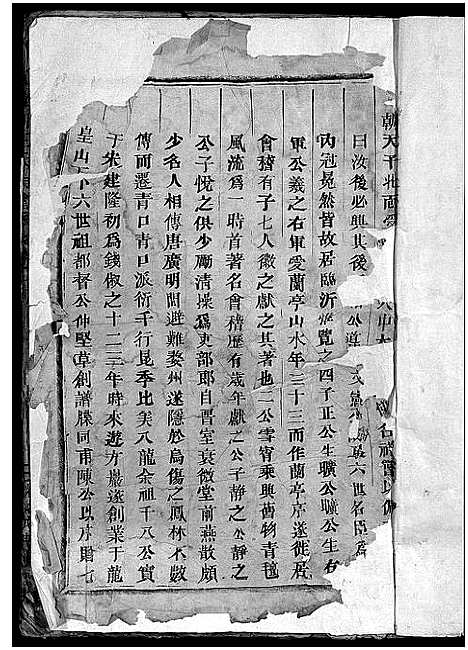 朝天子北面受
曰汝後必興其後 公導 六世名臣
內冠冕然皆故居臨沂 覽之四子正公生曠公曠公生右
軍公羲之右軍愛蘭亭山水年三十三而作蘭亭序遂徙居
會稽有子七人徽之獻之其著也二公雪宵乘興舊物青氊
風流爲一時首著名會稽歷有歲年獻之公子靜之公靜之
公子悅之俱少勵清操爲吏部郎自晋室衰微堂前燕散頗
少名人相傳唐廣明間避難婺州遂隱於烏傷之鳳林不數
傳而遷青口青口派衍千行昆季比美八龍余祖千八公實
于宋建隆初爲錢俶之十二三年時來遊方巖遂創業于龍
皇山下六世祖都督公仲堅草創譜牒同甫陳公以序贈七